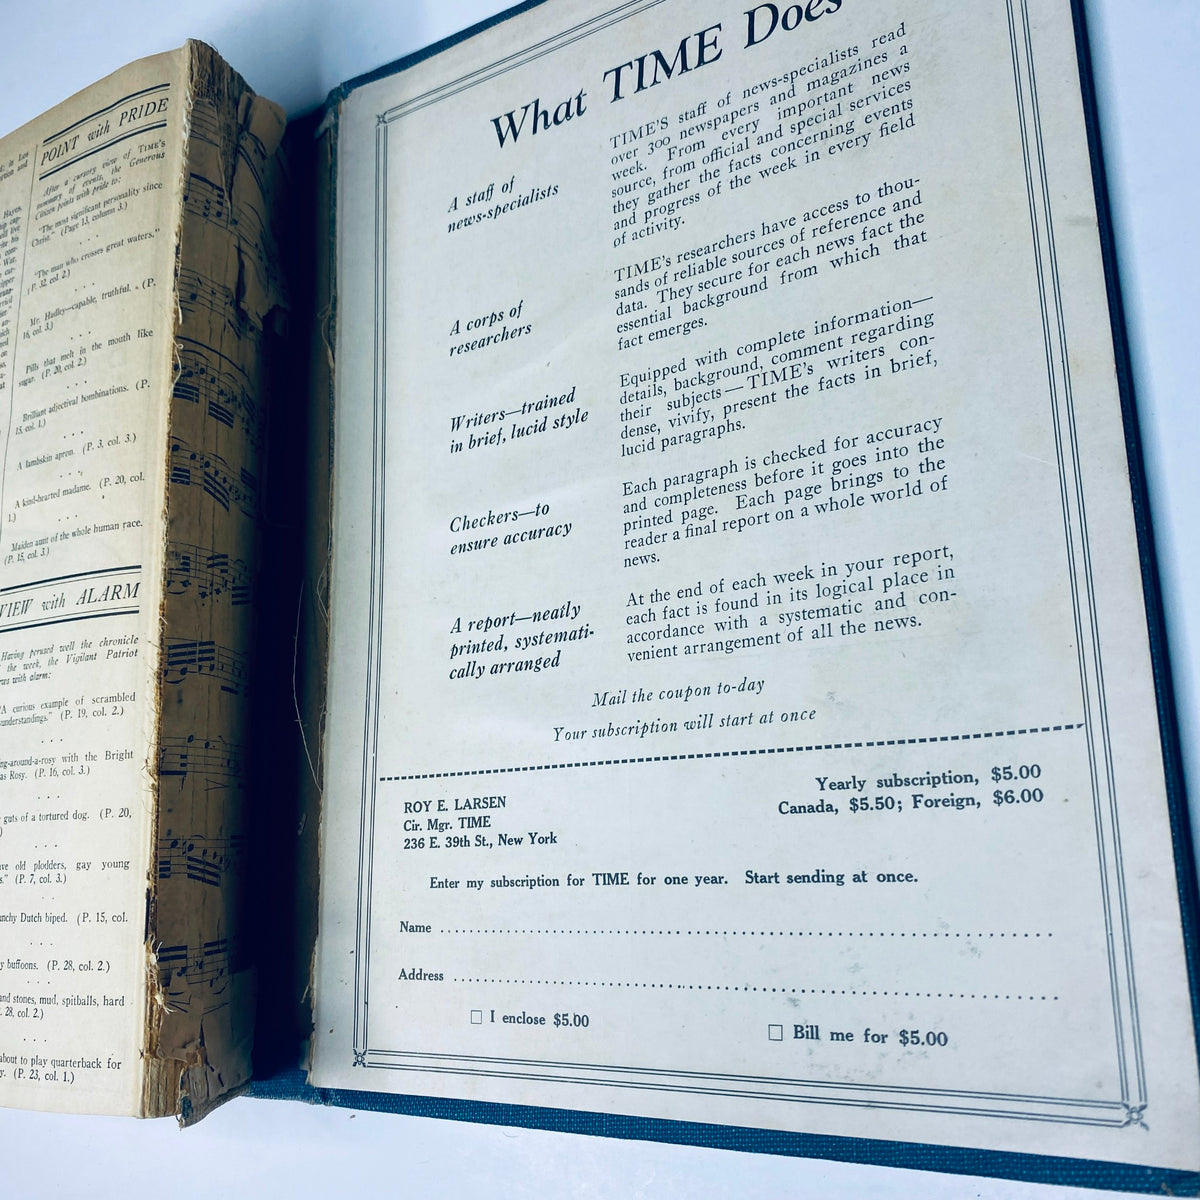 POINT with PRIDE
After a cursory view of TIME'S
summary of events, the Generous
Citizen points with pride to:
"The most significant personality since
Christ." (Page 13, column 3.)
"The man who crosses great waters."
(P. 32, col. 2.)
Mr. Hadley—capable, truthful. (P.
16, col. 3.)
Pills that melt in the mouth like
sugar. (P. 20, col. 2.)
Brilliant adjectival bombinations. (P.
15, col. 1.)
A lambskin apron. (P. 3, col. 3.)
A kind-hearted madame. (P. 20, col.
1.)
Maiden aunt of the whole human race.
(P. 15, col. 3.)
VIEW with ALARM
Having perused well the chronicle
the week, the Vigilant Patriot
with alarm:
"A curious example of scrambled
understandings." (P. 19, col. 2.)
ng-around-a-rosy with the Bright
as Rosy. (P. 16, col. 3.)
guts of a tortured dog. (P. 20,
ve old plodders, gay young
s." (P. 7, col. 3.)
nchy Dutch biped. (P. 15, col.
y buffoons. (P. 28, col. 2.)
and stones, mud, spitballs, hard
28, col. 2.)
about to play quarterback for
y. (P. 23, col. 1.)
What TIME Does
A staff of
news-specialists
TIME'S staff of news-specialists read
over 300 newspapers and magazines a
week. From every important news
source, from official and special services
they gather the facts concerning events
and progress of the week in every field
of activity.
A corps of
researchers
TIME's researchers have access to thou-
sands of reliable sources of reference and
data. They secure for each news fact the
essential background from which that
fact emerges.
Writers—trained
in brief, lucid style
Equipped with complete information—
details, background, comment regarding
their subjects—TIME's writers con-
dense, vivify, present the facts in brief,
lucid paragraphs.
Checkers—to
ensure accuracy
Each paragraph is checked for accuracy
and completeness before it goes into the
printed page. Each page brings to the
reader a final report on a whole world of
news.
A report—neatly
printed, systemati-
cally arranged
At the end of each week in your report,
each fact is found in its logical place in
accordance with a systematic and con-
venient arrangement of all the news.
Mail the coupon to-day
Your subscription will start at once
ROY E. LARSEN
Cir. Mgr. TIME
236 E. 39th St., New York
Yearly subscription, $5.00
Canada, $5.50; Foreign, $6.00
Enter my subscription for TIME for one year. Start sending at once.
Name
Address
☐ I enclose $5.00
☐ Bill me for $5.00